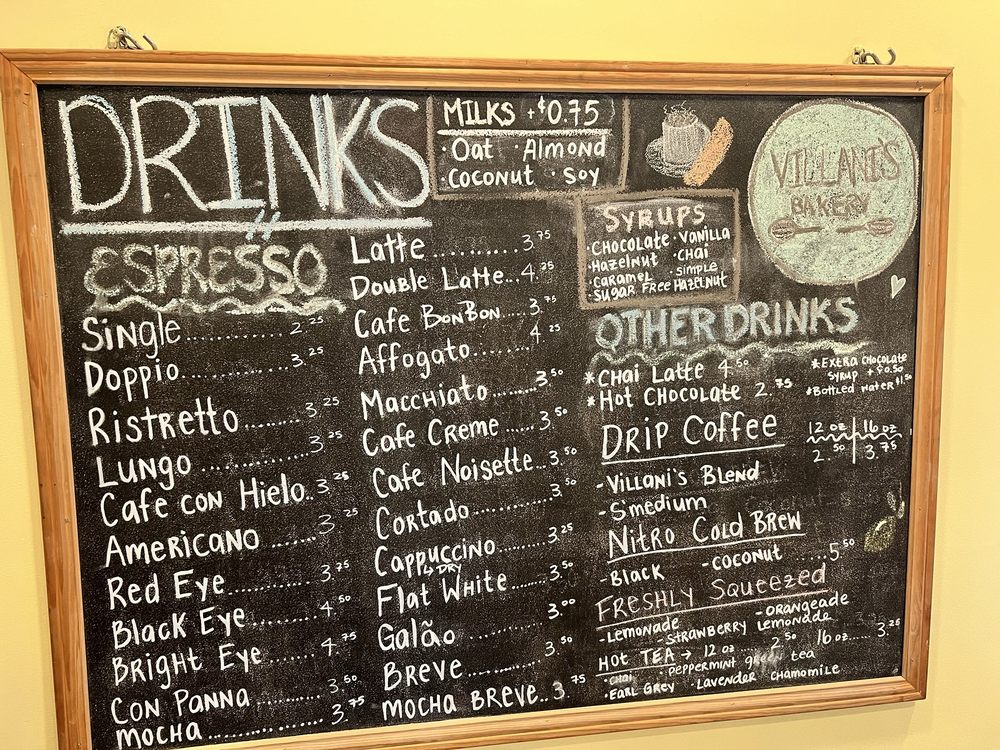 DRINKS
MILKS +$0.75
·Oat ·Almond
·Coconut ·Soy
VILLANI'S
BAKERY
ESPRESSO
Single.......... 2.25
Doppio.......... 3.25
Ristretto....... 3.25
Lungo .......... 3.25
Cafe con Hielo.. 3.25
Americano ...... 3.25
Red Eye......... 3.75
Black Eye ...... 4.50
Bright Eye...... 4.75
Con Panna ...... 3.50
Mocha........... 3.75
Latte .......... 3.75
Double Latte... 4.25
Cafe BonBon .... 3.75
Affogato........ 4.25
Macchiato ...... 3.50
Cafe Creme ..... 3.50
Cafe Noisette... 3.50
Cortado ........ 3.50
Cappuccino...... 3.25
↳ Dry
Flat White...... 3.50
Galão .......... 3.00
Breve........... 3.50
Mocha Breve.. 3.75
SYRUPS
·Chocolate ·Vanilla
·Hazelnut ·Chai
·Caramel ·Simple
·Sugar Free Hazelnut
OTHER DRINKS
*Chai Latte 4.50
*Hot Chocolate 2.75
*Extra Chocolate
Syrup +$0.50
*Bottled Water $1.50
Drip Coffee
12 oz | 16 oz
2.50 | 3.75
-Villani's Blend
-Smedium
Nitro Cold Brew
-Black -Coconut ......5.50
Freshly Squeezed
-Lemonade -Orangeade
-Strawberry Lemonade
Hot Tea → 12 oz ...... 2.50 16 oz ..... 3.25
·Chai ·Peppermint green tea
·Earl Grey ·Lavender Chamomile